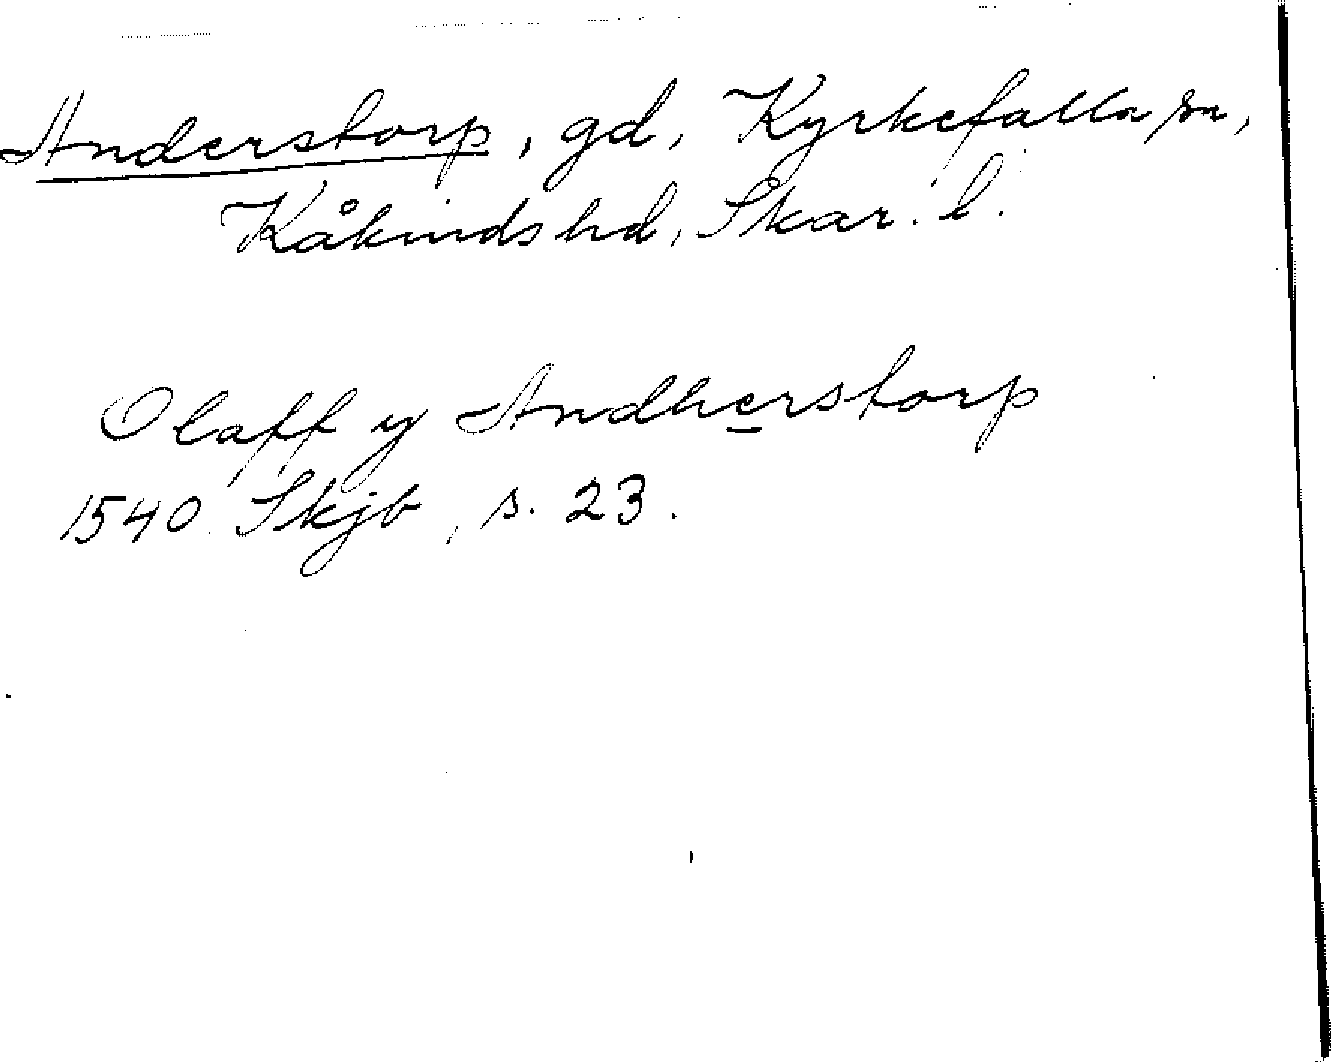 Anderstorp, gd, Kyrkefalla sn,
Kåkinds hd, Skar. l.
Olaff y Andherstorp
1540 Skjb, s. 23.